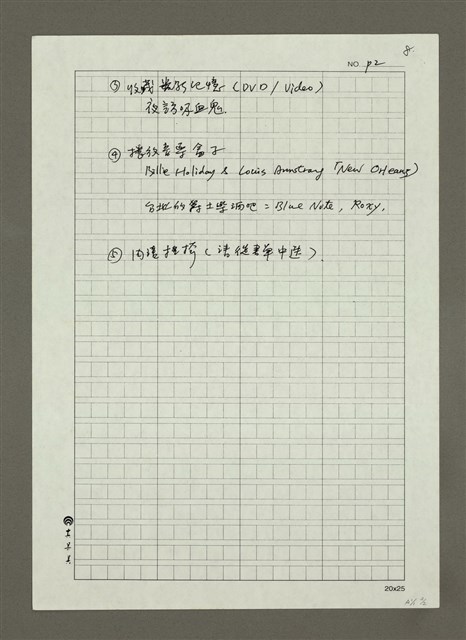 8.
NO. p2
③ 收藏影的記憶 (DVD / Video)
夜訪吸血鬼.
④ 播放音樂盒子
Billie Holiday & Louis Armstrong 「New Orleans」
台北的爵士樂酒吧：Blue Note, Roxy.
⑤ 內頁推介 (請從書單中選).
20x25